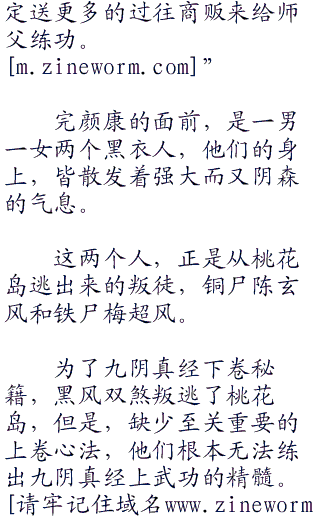 定送更多的过往商贩来给师
父练功。
[m.zineworm.com]”
完颜康的面前，是一男
一女两个黑衣人，他们的身
上，皆散发着强大而又阴森
的气息。
这两个人，正是从桃花
岛逃出来的叛徒，铜尸陈玄
风和铁尸梅超风。
为了九阴真经下卷秘
籍，黑风双煞叛逃了桃花
岛，但是，缺少至关重要的
上卷心法，他们根本无法练
出九阴真经上武功的精髓。
[请牢记住域名www.zineworm